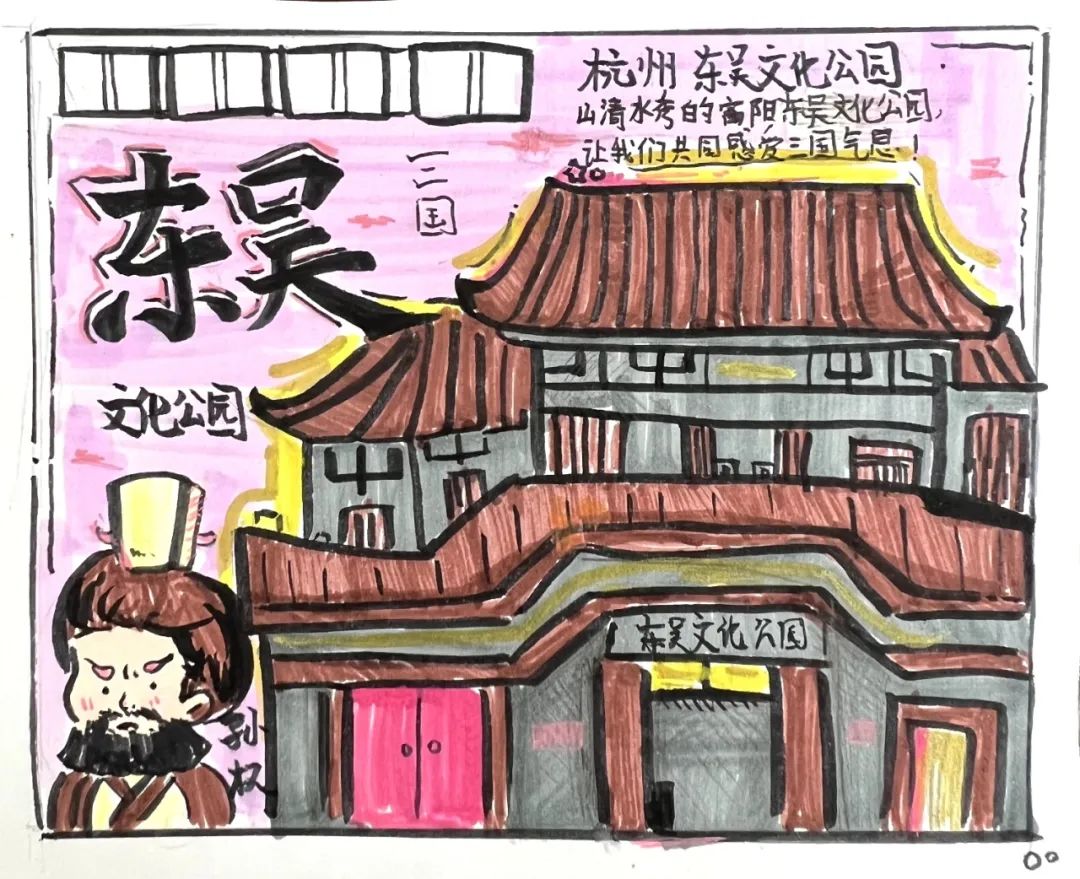 杭州 东吴文化公园
山清水秀的富阳东吴文化公园,
让我们共同感受三国气息!
东吴
三国
文化公园
东吴文化公园
孙权